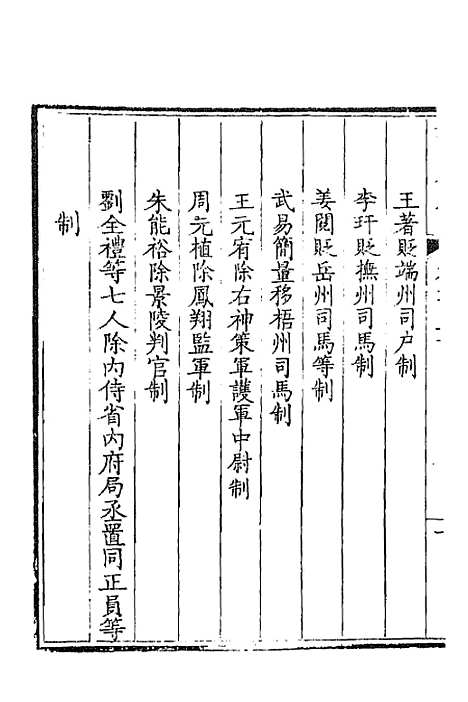 王著貶端州司户制
李玕貶撫州司馬制
姜閱貶岳州司馬等制
武易簡量移梧州司馬制
王元宥除右神策軍護軍中尉制
周元植除鳳翔監軍制
朱能裕除景陵判官制
劉全禮等七人除内侍省内府局丞置同正員等
制